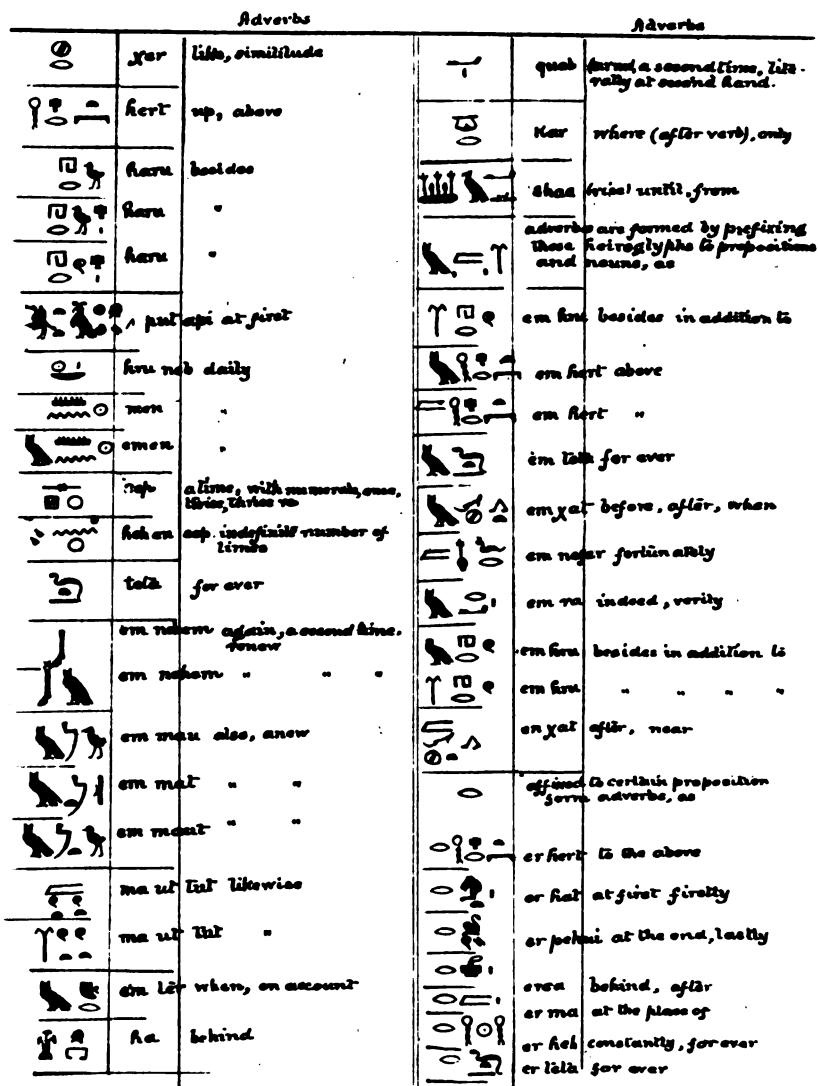 Adverbs
χer like, similitude
hert up, above
haru besides
haru "
haru "
put api at first
hru neb daily
men "
emen "
sep a time, with numerals, once,
twice, thrice
heh en sep. indefinite number of
times
teta for ever
em nehem again, a second time.
renew
em nehem " " "
em mau also, anew
em mat " "
em maut " "
ma ut tut likewise
ma ut tut "
em ter when, on account
ha behind
Adverbs
a second time, lite-
rally at second hand.
Kar where (after verb), only
shaa until, from
adverbs are formed by prefixing
these heiroglyphs to prepositions
and nouns, as
em hru besides in addition to
em hert above
em hert "
em teta for ever
em χat before, after, when
em nefer fortunately
em ra indeed, verily
em hru besides in addition to
em hru " " " "
en χat after, near
affixed to certain preposition
form adverbs, as
er hert to the above
er hat at first firstly
er pehui at the end, lastly
ersa behind, after
er ma at the place of
er heh constantly, for ever
er teta for ever